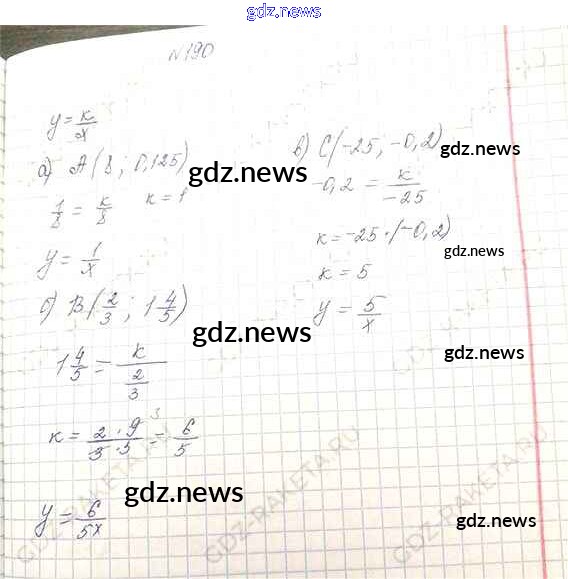 gdz.news
№190
y = k/x
а) A(8; 0,125)
1/8 = k/8 k = 1
y = 1/x
б) B(2/3; 1 4/5)
1 4/5 = k/(2/3)
k = 2·9 3/3·5 = 6/5
y = 6/5x
в) C(-25; -0,2)
-0,2 = k/-25
k = -25·(-0,2)
k = 5
y = 5/x
gdz.news
gdz.news
gdz.news
gdz.news
gdz.news
gdz.news
gdz.news
GDZ-RAKETA.RU
GDZ-RAKETA.RU
GDZ-RAKETA.RU